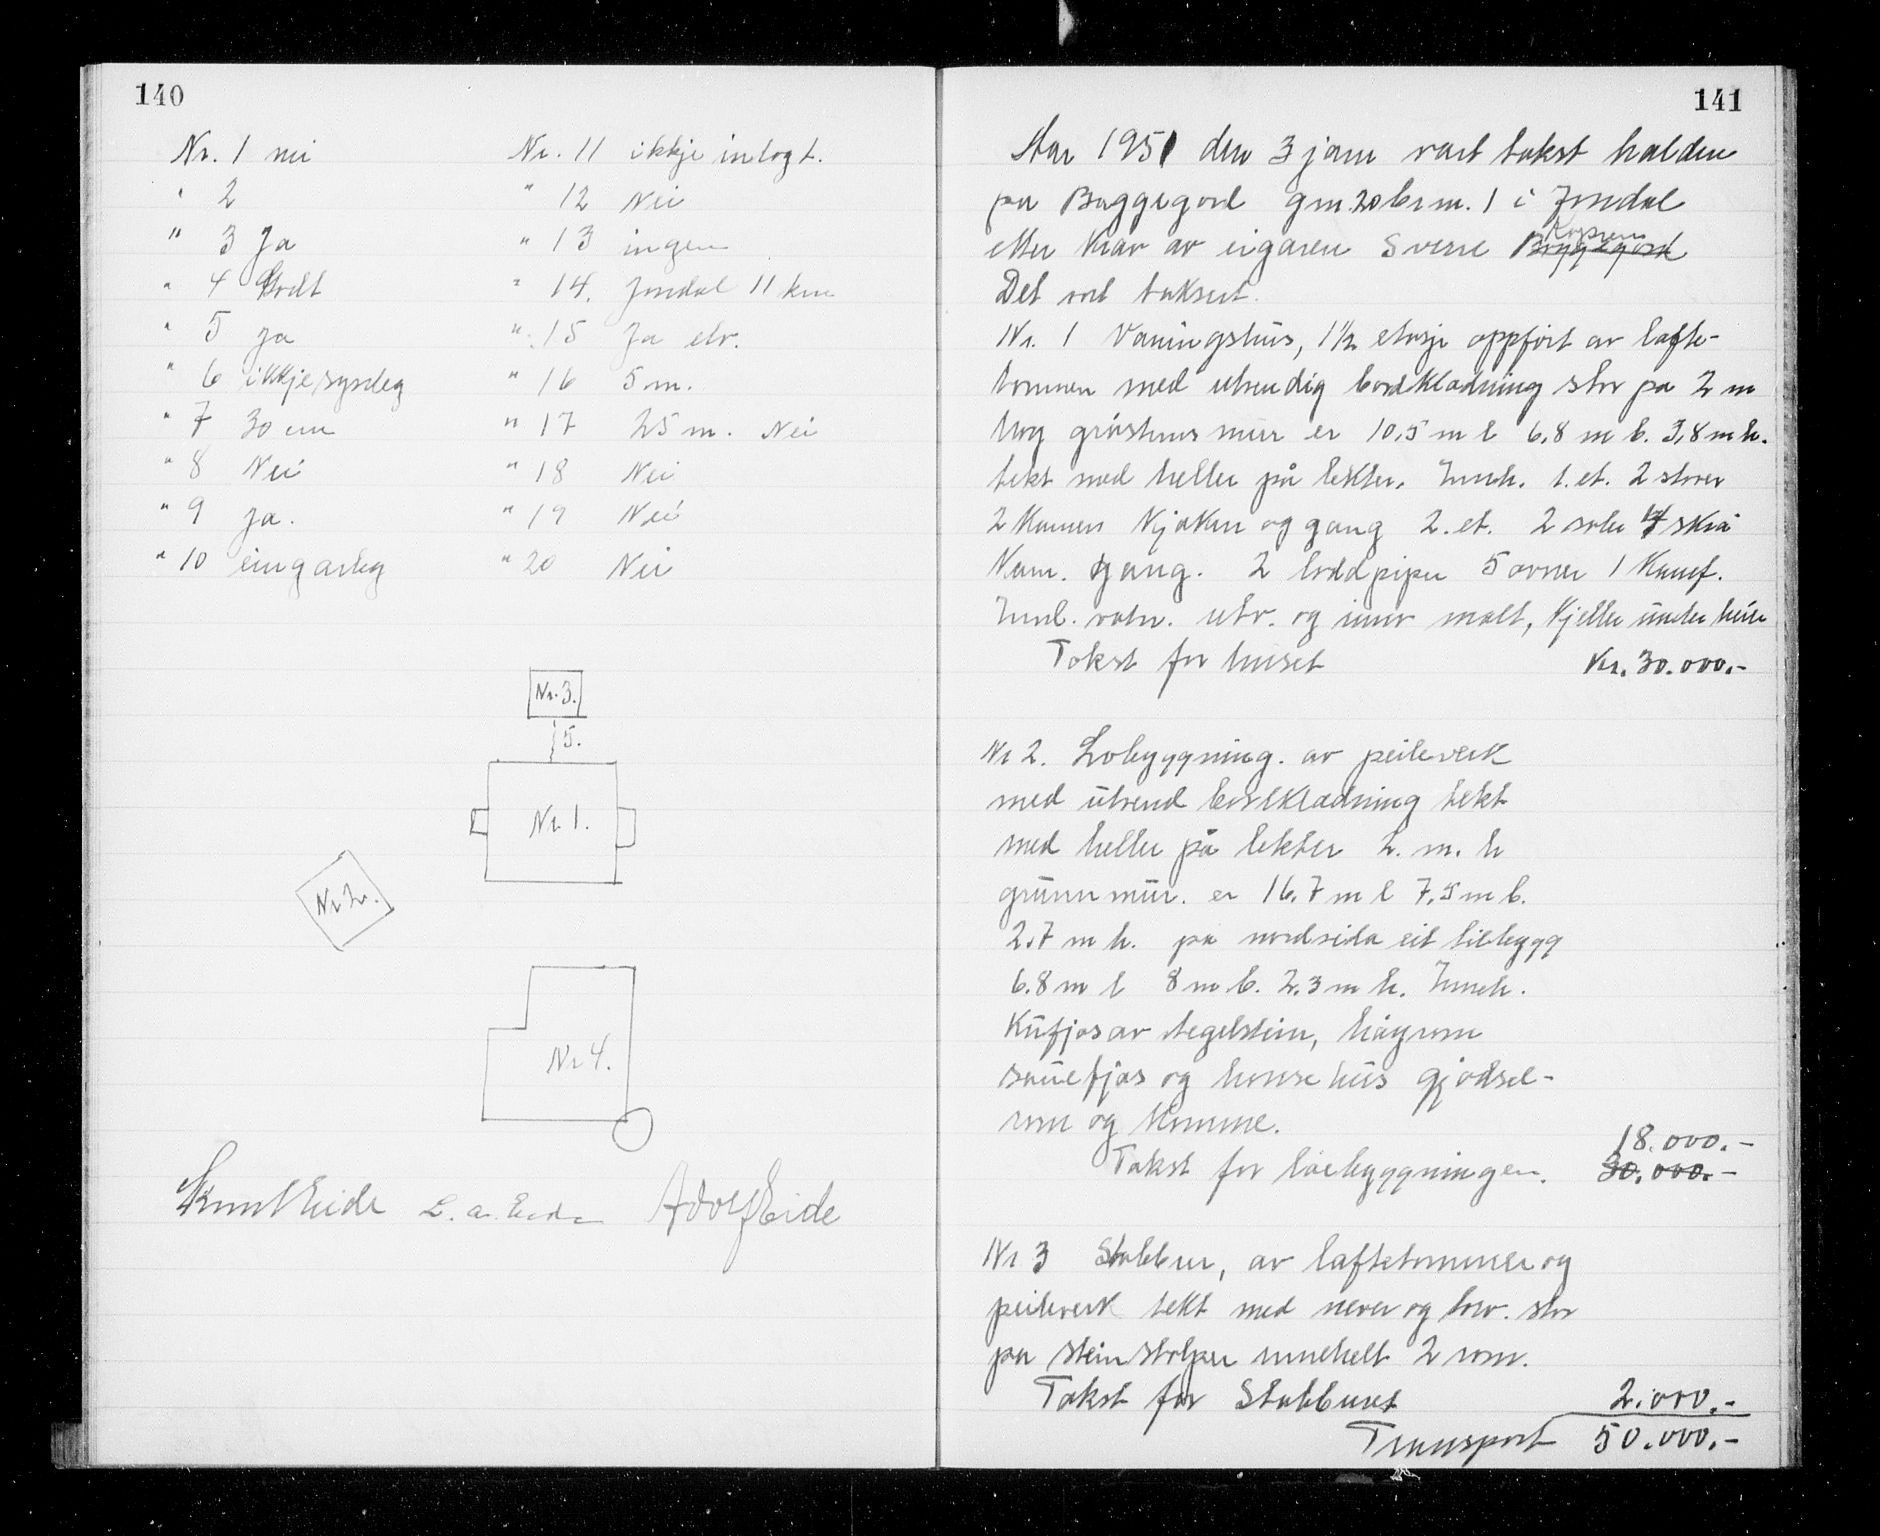 140
Nr. 1 nei
" 2
" 3 Ja
" 4 Godt
" 5 Ja
" 6 ikkje synleg
" 7 30 cm
" 8 Nei
" 9 Ja.
" 10 eingarleg
Nr. 11 ikkje inlagt.
" 12 Nei
" 13 ingen
" 14. Jondal 11 km
" 15 Ja elv.
" 16 5 m.
" 17 25 m. Nei
" 18 Nei
" 19 Nei
" 20 Nei
Nr. 3.
5.
Nr 1.
Nr 2.
Nr 4.
Knut Eide L. A. Eide Adolf Eide
141
Aar 1951 den 3 jan vart takst halden
pa Byggegard gnr. 20 brnr. 1 i Jondal
etter krav av eigaren Sverre Byggegard
Det vart taksert.
Nr. 1 Vaningshus, 1 1/2 etasje oppfört av lafte-
tommer med utvendig bordkladning stor pa 2 m
hog gråsteins mur er 10,5 m l 6,8 m b. 3,8 m h.
tekt med heller på lekter. Inneh. 1. et. 2 stover
2 kamers kjøken og gang 2. et. 2 saler 4 skra
kam. gang. 2 brddpiper 5 ovner 1 kamf.
Innl. vatn. utv. og innv malt, kjeller under heile
Takst for huset Kr. 30.000.-
Nr 2. Lobyggning. av peileverk
med utvend bordkladning tekt
med heller på lekter 2. m. h
grunnmur. er 16.7 m l 7.5 m b.
2.7 m h. pa nordsida eit tilbygg
6.8 m l 8 m b. 2.3 m h. Inneh.
Kufjos av tegelstein, högrom
sauefjos og hønsehus gjødsel-
rom og kumme.
18.000.-
Takst for löebyggningen. 30.000.-
Nr 3 Stabbur, av laftetommer og
peileverk tekt med never og torv. stor
pa steinstolper innehelt 2 rom.
Takst for Stabburet 2.000.-
Transport 50.000.-